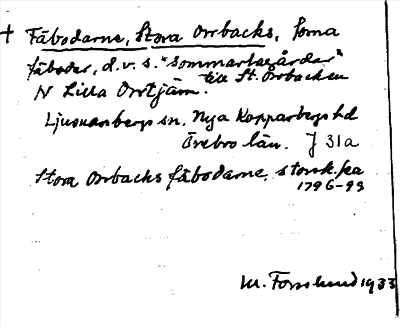 † Fäbodarne, Stora Orrbacks, Forna
fäboder, d.v.s. "sommarbegårder"
till St. Orrbacken
N Lilla Orrtjärn.
Ljusnarsbergs sn, Nya Kopparbergs hd
Örebro län. J 31a
Stora Orrbacks fäbodarne, storsk. ka
1796-99
M. Forslund 1933